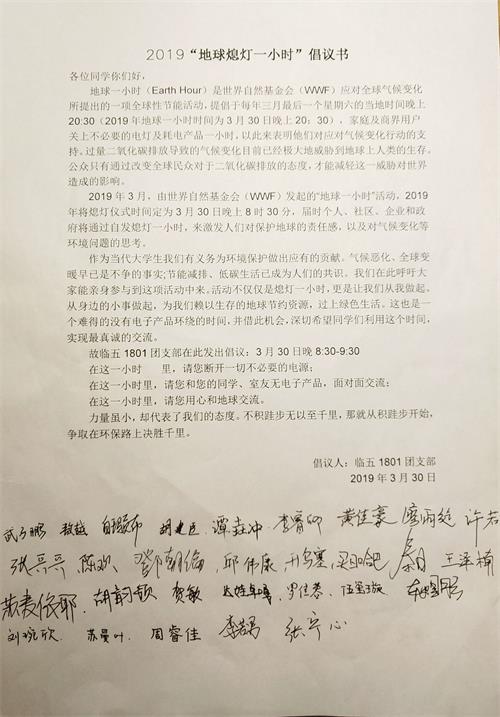 2019“地球熄灯一小时”倡议书
各位同学你们好，
地球一小时（Earth Hour）是世界自然基金会（WWF）应对全球气候变化
所提出的一项全球性节能活动，提倡于每年三月最后一个星期六的当地时间晚上
20:30（2019 年地球一小时时间为 3 月 30 日晚上 20：30），家庭及商界用户
关上不必要的电灯及耗电产品一小时，以此来表明他们对应对气候变化行动的支
持。过量二氧化碳排放导致的气候变化目前已经极大地威胁到地球上人类的生存。
公众只有通过改变全球民众对于二氧化碳排放的态度，才能减轻这一威胁对世界
造成的影响。
2019 年 3 月，由世界自然基金会（WWF）发起的“地球一小时”活动，2019
年将熄灯仪式时间定为 3 月 30 日晚上 8 时 30 分，届时个人、社区、企业和政
府将通过自发熄灯一小时，来激发人们对保护地球的责任感，以及对气候变化等
环境问题的思考。
作为当代大学生我们有义务为环境保护做出应有的贡献。气候恶化、全球变
暖早已是不争的事实;节能减排、低碳生活已成为人们的共识。我们在此呼吁大
家能亲身参与到这项活动中来。活动不仅仅是熄灯一小时，更是让我们从我做起，
从身边的小事做起，为我们赖以生存的地球节约资源，过上绿色生活。这也是一
个难得的没有电子产品环绕的时间，并借此机会，深切希望同学们利用这个时间，
实现最真诚的交流。
故临五 1801 团支部在此发出倡议：3 月 30 日晚 8:30-9:30
在这一小时 里，请您断开一切不必要的电源；
在这一小时里，请您和您的同学、室友无电子产品，面对面交流；
在这一小时里，请您用心和地球交流。
力量虽小，却代表了我们的态度。不积跬步无以至千里，那就从积跬步开始，
争取在环保路上决胜千里。
倡议人：临五 1801 团支部
2019 年 3 月 30 日
谭垚冲 黄佳豪 廖雨婷 许若
张兵兵 陈欢 邱伟康 王泽楠
胡韵歆 贺敏 罗佳蓉
刘琬欣 苏曼叶 周睿佳 张宁心